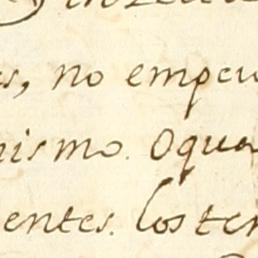 s, no empeu
nismo. Oqua
entes. los ter